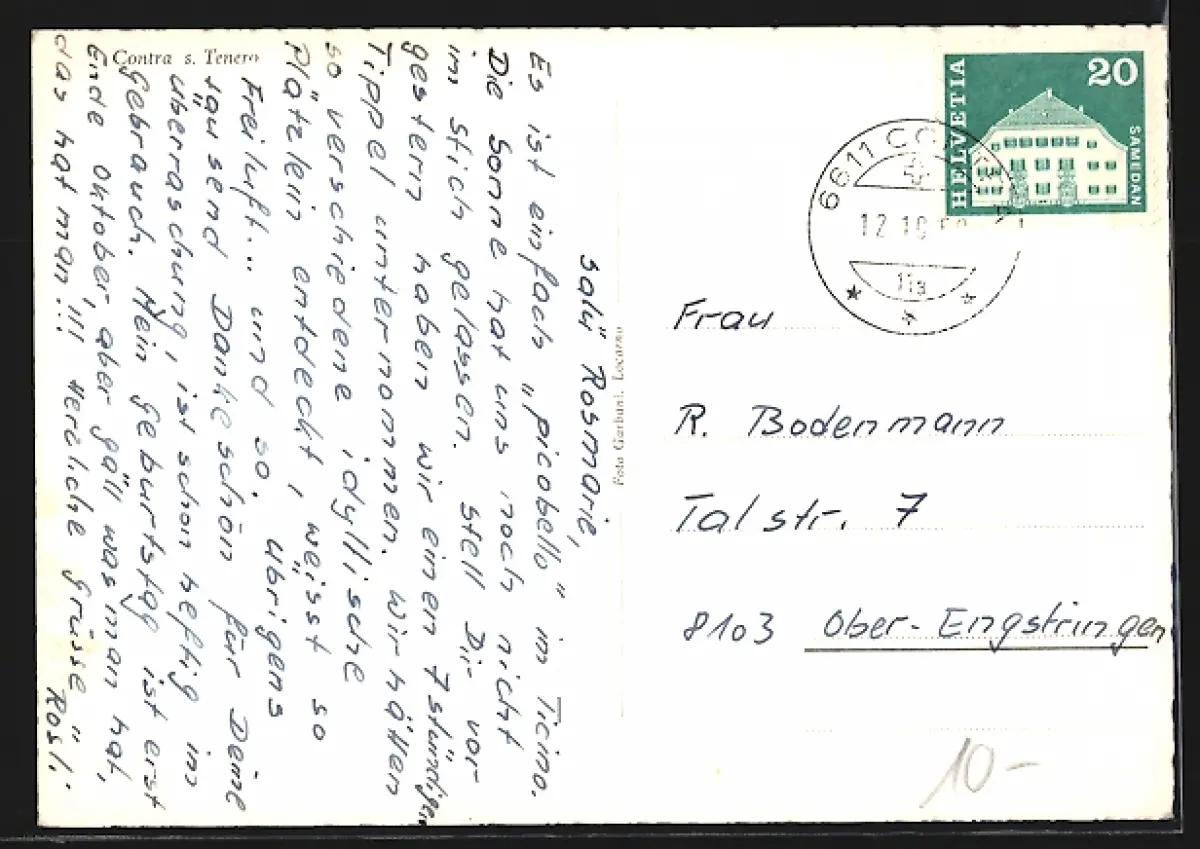 Contra s. Tenero
Salü Rosmarie,
Es ist einfach „picobello" in Ticino.
Die Sonne hat uns noch nicht
im Stich gelassen. Stell Dir vor
gestern haben wir einen 7stündigen
Tippel unternommen. Wir hätten
so verschiedene idyllische
Plätzlein entdeckt, weisst so
Freiluft... und so. Übrigens
tausend Dankeschön für Deine
Überraschung, ist schon heftig in
Gebrauch. Mein Geburtstag ist erst
Ende Oktober, aber gäll was man hat,
das hat man!!! Herzliche Grüsse
Rösli.
Foto Garbani, Locarno
HELVETIA
20
SAMEDAN
6611 CONTRA
12.10.
11a
Frau
R. Bodenmann
Talstr. 7
8103 Ober-Engstringen
10-